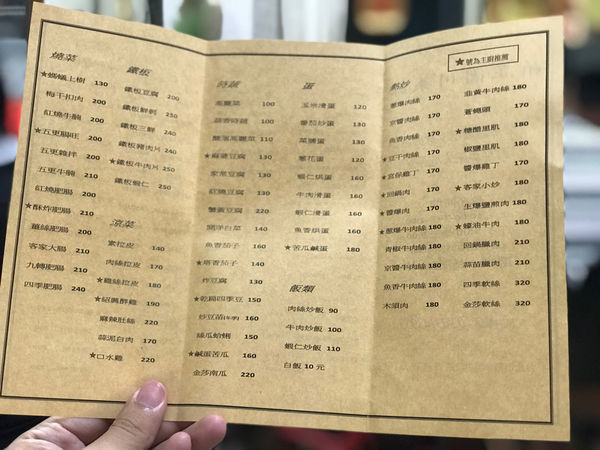 ★號為主廚推薦
燒菜
★螞蟻上樹 130
梅干扣肉 200
紅燒牛腩 200
★五更腸旺 200
五更雜拌 200
五更牛腩 210
紅燒肥腸 200
★酥炸肥腸 210
薑絲肥腸 210
客家大腸 210
九轉肥腸 210
四季肥腸 240
鐵板
鐵板豆腐 200
鐵板鮮蚵 250
鐵板三鮮 240
鐵板豬肉片 240
★鐵板牛肉片 250
鐵板蝦仁 250
涼菜
素拉皮 140
肉絲拉皮 170
★雞絲拉皮 180
★紹興醉雞 190
麻辣肚絲 220
蒜泥白肉 170
★口水雞 220
時蔬
高麗菜 100
蒜香時蔬 100
醋溜高麗菜 110
★麻婆豆腐 130
家常豆腐 130
紅燒豆腐 130
蟹黃豆腐 220
開洋白菜 140
魚香茄子 160
★塔香茄子 140
炸豆腐 130
★乾扁四季豆 150
炒豆苗(冬季) 160
絲瓜蛤蜊 150
★鹹蛋苦瓜 160
金莎南瓜 220
蛋
玉米滑蛋 120
番茄炒蛋 130
菜脯蛋 130
蔥花蛋 120
蝦仁烘蛋 160
牛肉滑蛋 160
蝦仁滑蛋 160
魚香烘蛋 160
★苦瓜鹹蛋 180
飯類
肉絲炒飯 90
牛肉炒飯 100
蝦仁炒飯 110
白飯 10 元
熱炒
蔥爆肉絲 170
京醬肉絲 170
魚香肉絲 170
★豆干肉絲 170
★宮保雞丁 170
★回鍋肉 170
★醬爆肉 170
★蔥爆牛肉絲 180
青椒牛肉絲 180
京醬牛肉絲 180
魚香牛肉絲 180
木須肉 180
韭黃牛肉絲 180
蒼蠅頭 170
★糖醋里肌 170
椒鹽里肌 170
醬爆雞丁 170
★客家小炒 180
生爆鹽煎肉 180
★蠔油牛肉 180
回鍋臘肉 210
蒜苗臘肉 210
四季軟絲 320
金莎軟絲 320